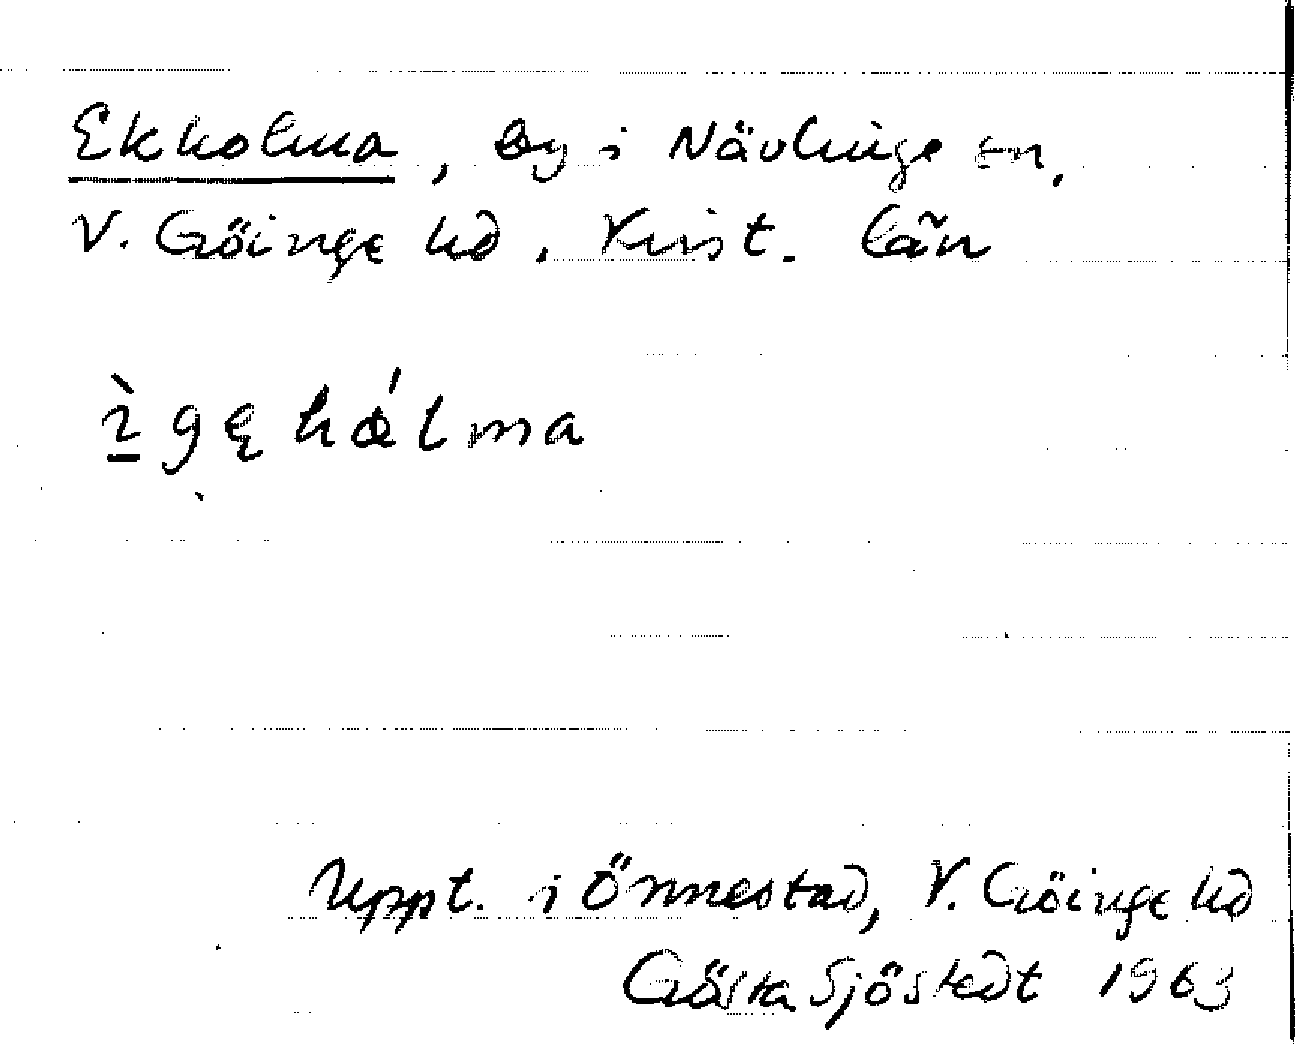 Ekholma, by i Nävlinge sn,
V. Göinge hd, Krist. län
ìgęhǻlma
Uppt. i Önnestad, V. Göinge hd
Gösta Sjöstedt 1963